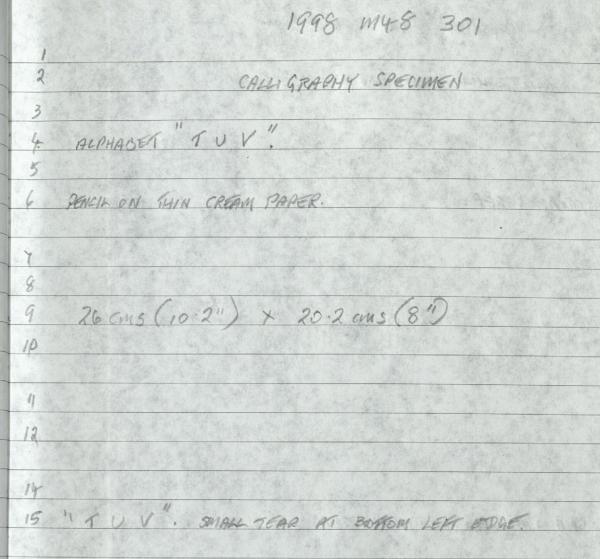 1998 M48 301
1
2 CALLIGRAPHY SPECIMEN
3
4. ALPHABET "T U V".
5
6 PENCIL ON THIN CREAM PAPER.
7
8
9 26 cms (10.2") x 20.2 cms (8")
10
11
12
14
15 "T U V". SMALL TEAR AT BOTTOM LEFT EDGE.